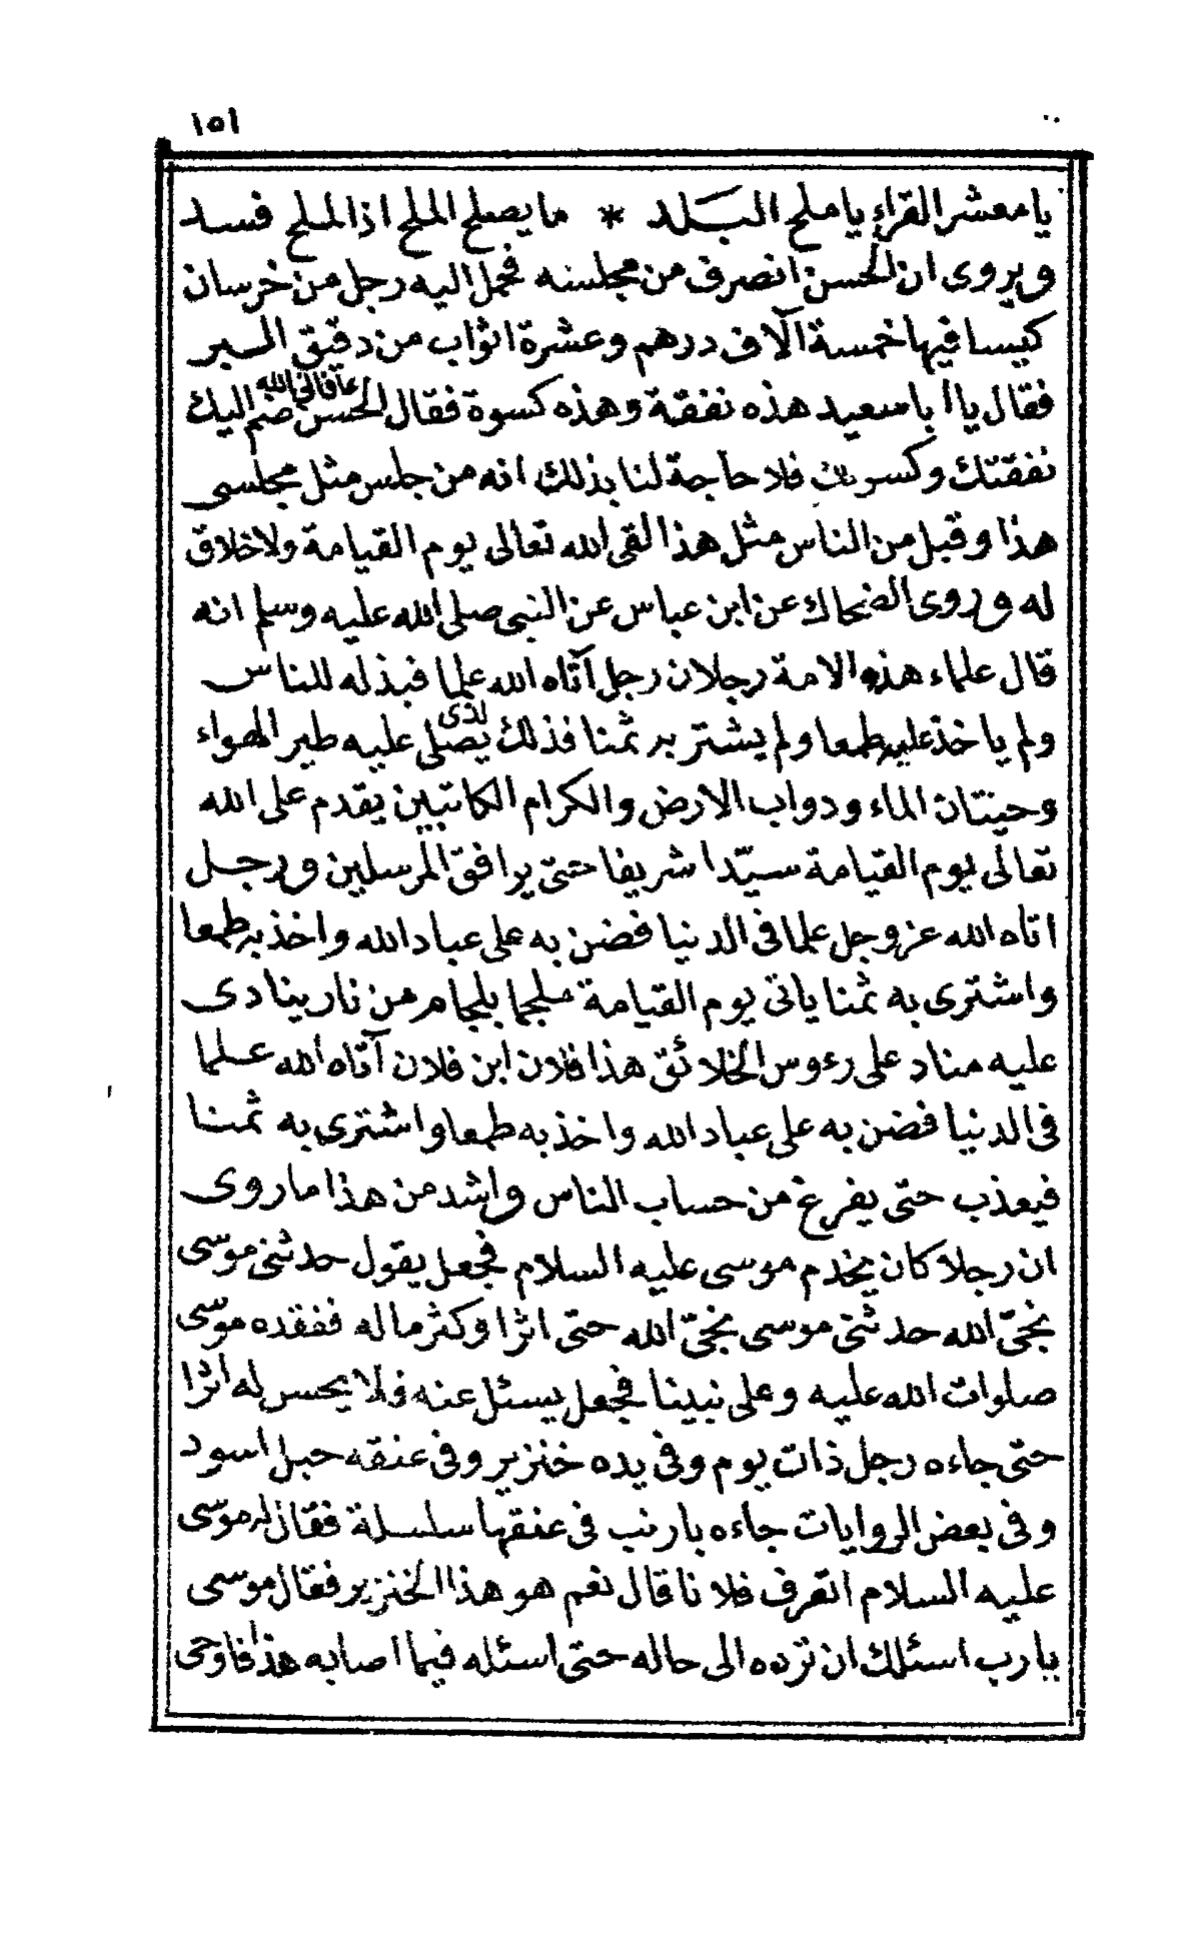 ١٥١
يا معشر القراء يا ملح البلد * ما يصلح الملح اذا الملح فسد
ويروى ان الحسن انصرف من مجلسه فحمل اليه رجل من خرسان
كيسا فيها خمسة آلاف درهم وعشرة اثواب من دقيق البر
فقال يا ابا سعيد هذه نفقة وهذه كسوة فقال الحسن عافاك الله ضم اليك
نفقتك وكسوتك فلا حاجة لنا بذلك انه من جلس مثل مجلسى
هذا وقبل من الناس مثل هذا لقى الله تعالى يوم القيامة ولا خلاق
له وروى الضحاك عن ابن عباس عن النبى صلى الله عليه وسلم انه
قال علماء هذه الامة رجلان رجل آتاه الله علما فبذله للناس
ولم ياخذ عليه طمعا ولم يشتر به ثمنا فذلك لذى يصلى عليه طير الهواء
وحيتان الماء ودواب الارض والكرام الكاتبين يقدم على الله
تعالى يوم القيامة سيّدا شريفا حتى يرافق المرسلين ورجل
اتاه الله عز وجل علما فى الدنيا فضن به على عباد الله واخذ به طمعا
واشترى به ثمنا ياتى يوم القيامة ملجما بلجام من نار ينادى
عليه مناد على رءوس الخلائق هذا فلان ابن فلان آتاه الله علما
فى الدنيا فضن به على عباد الله واخذ به طمعا واشترى به ثمنا
فيعذب حتى يفرغ من حساب الناس واشد من هذا ما روى
ان رجلا كان يخدم موسى عليه السلام فجعل يقول حدثنى موسى
نجىّ الله حدثنى موسى نجىّ الله حتى اثرا وكثر ماله ففقده موسى
صلوات الله عليه وعلى نبينا فجعل يسئل عنه فلا يحس له اثرا
حتى جاءه رجل ذات يوم وفى يده خنزير وفى عنقه حبل اسود
وفى بعض الروايات جاءه بارنب فى عنقها سلسلة فقال له موسى
عليه السلام اتعرف فلانا قال نعم هو هذا الخنزير فقال موسى
يا رب اسئلك ان ترده الى حاله حتى اسئله فيما اصابه هذا فاوحى